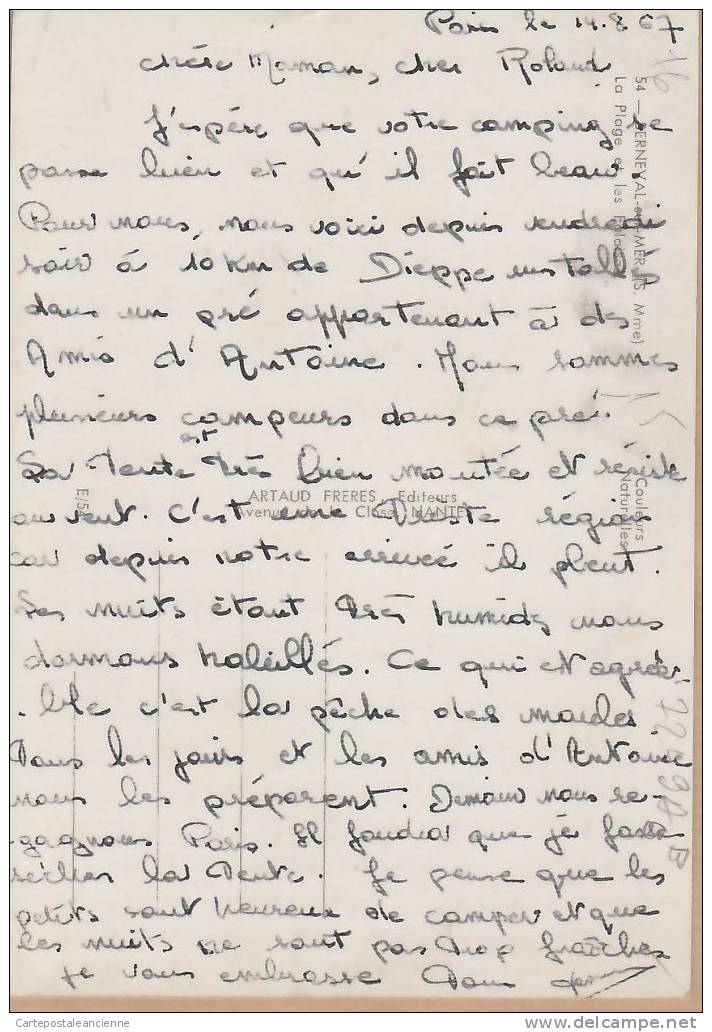 Paris le 14.8.67
chère Maman, cher Roland
J'espère que votre camping se
passe bien et qu'il fait beau.
Pour nous, nous voici depuis vendredi
soir à 10 Km de Dieppe installés
dans un pré appartenant à des
Amis d'Antoine. Nous sommes
plusieurs campeurs dans ce pré.
La tente est très bien montée et résiste
au vent. C'est une triste région
car depuis notre arrivée il pleut.
Les nuits étant très humides nous
dormons habillés. Ce qui est agréa-
ble c'est la pêche des moules.
Tous les jours et les amis d'Antoine
nous les préparent. Demain nous re-
-gagnons Paris. Il faudra que je fasse
sécher la tente. Je pense que les
petits sont heureux de camper et que
les nuits ne sont pas trop fraîches
je vous embrasse Tous
54 — BERNEVAL-sur-MER (S. Mme)
La Plage et les
ARTAUD FRERES, Editeurs
Avenue de la Close, NANTES
Couleurs
Naturelles
E/54
16
15
Cartepostaleancienne
delcampe.net